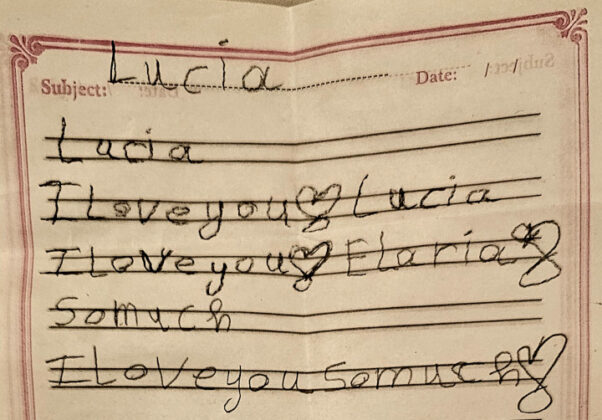 Subject: Lucia Date: / /
Lucia
I love you Lucia
I LoVe you Elaria
Somuch
I LoVe you Somuch